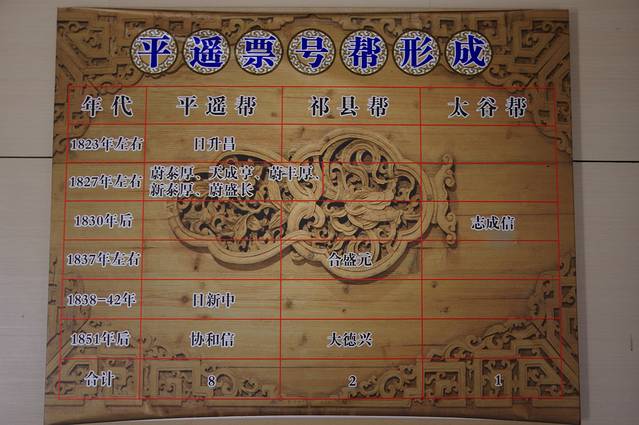 平遥票号帮形成
年代 平遥帮 祁县帮 太谷帮
1823年左右 日升昌
1827年左右 蔚泰厚、天成亨、蔚丰厚、
新泰厚、蔚盛长
1830年后 志成信
1837年左右 合盛元
1838-42年 日新中
1851年后 协和信 大德兴
合计 8 2 1